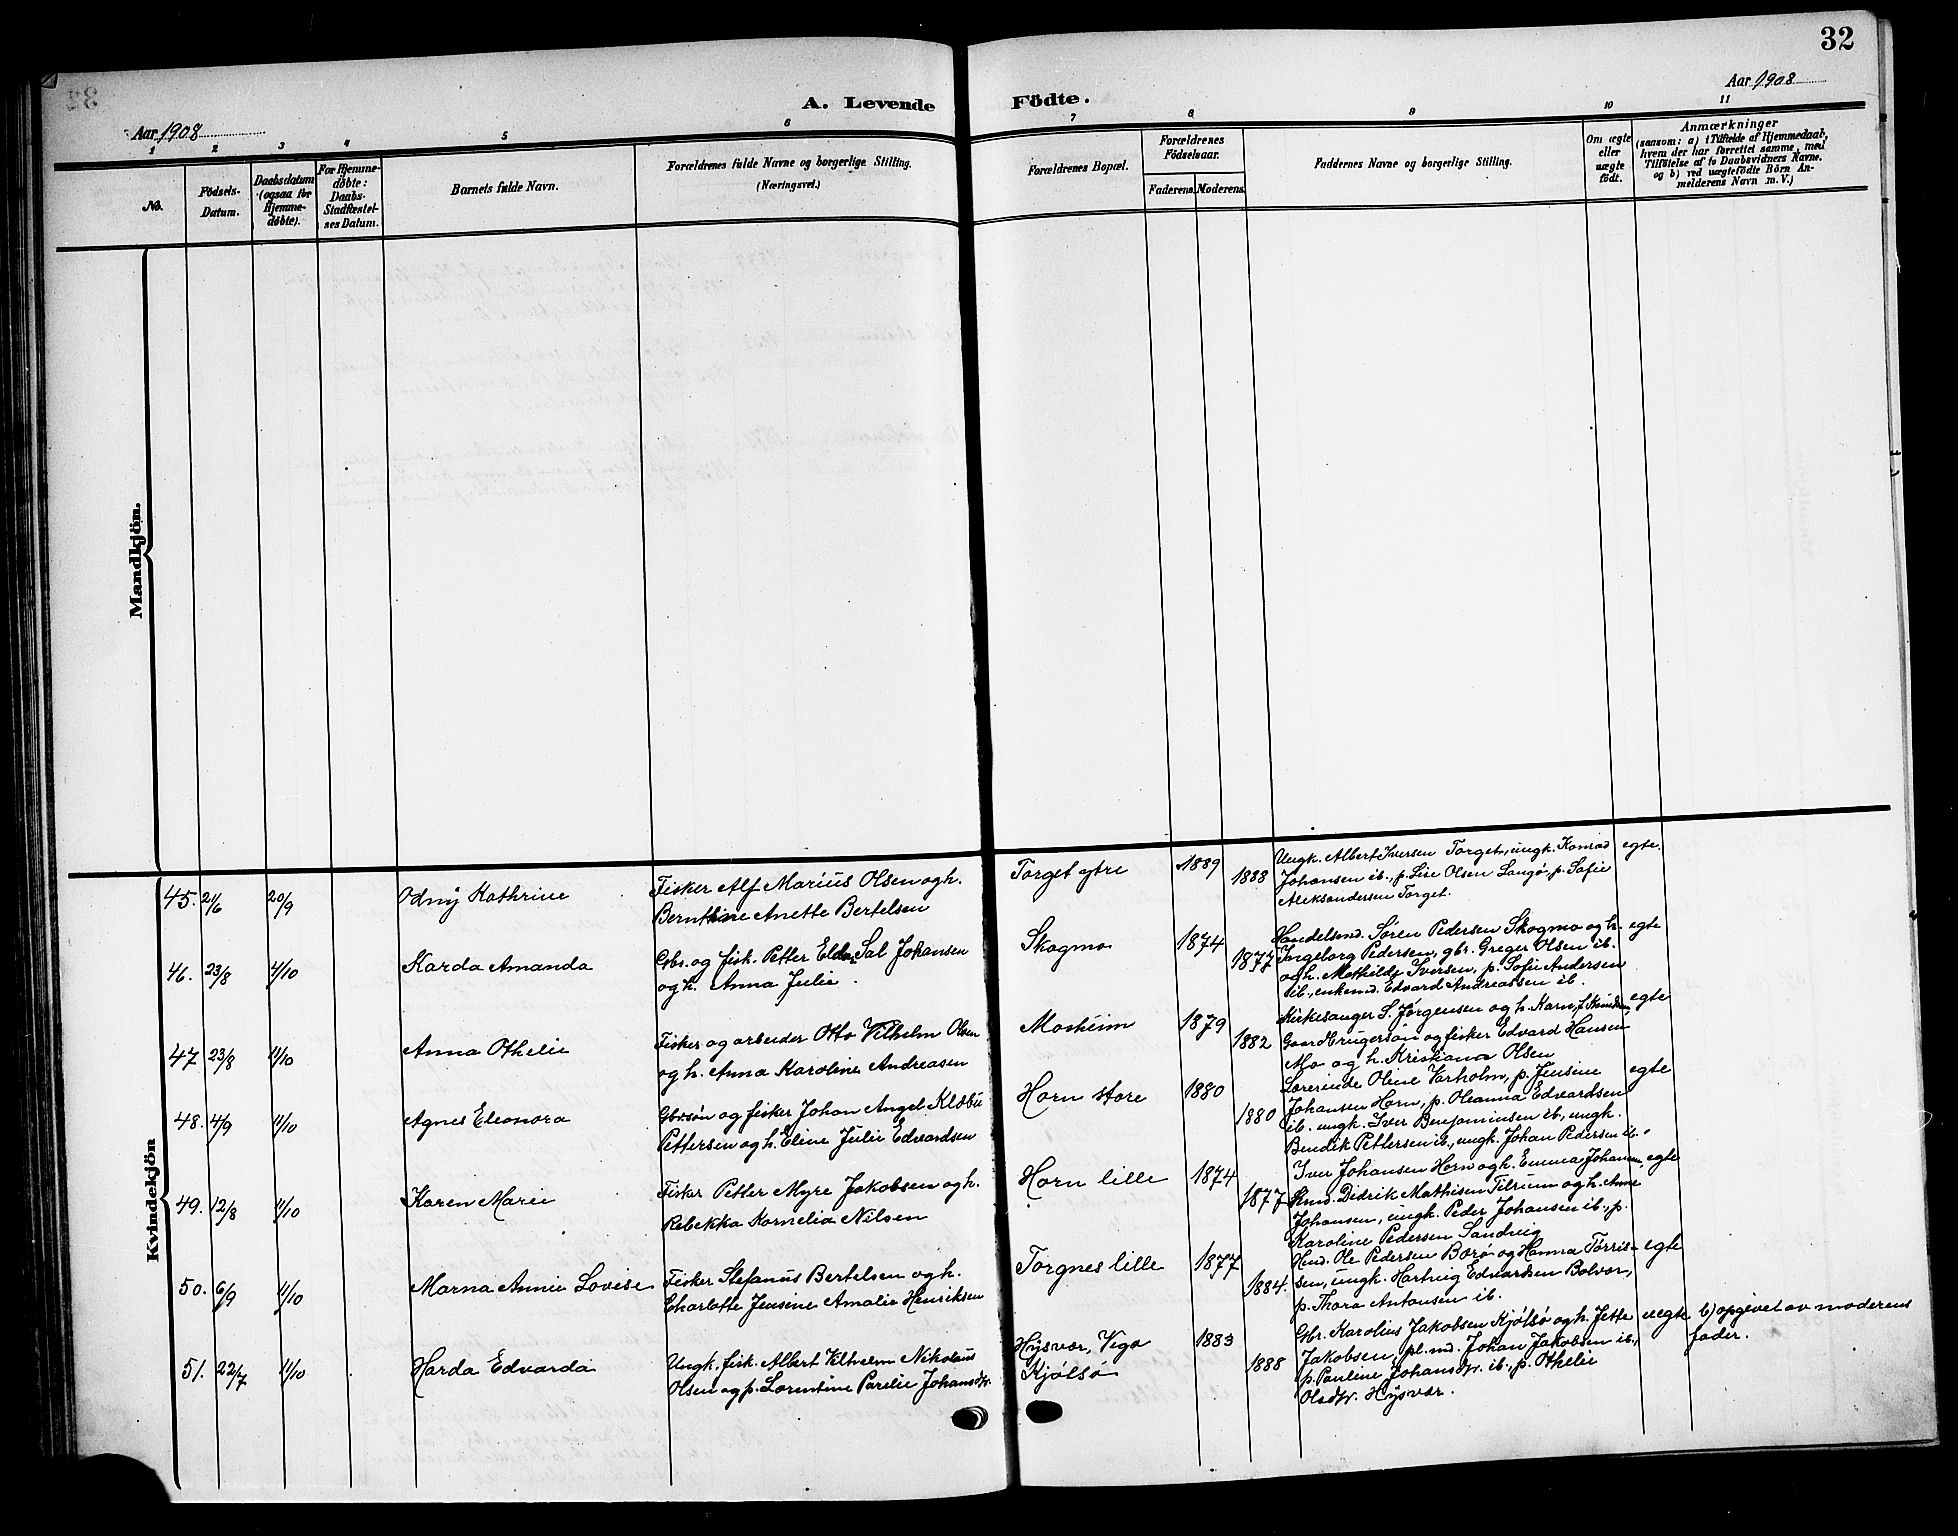 32
A. Levende Födte.
Aar 1908
Aar 1908
1 2 3 4 5 6 7 8 9 10 11
No.
Födsels-Datum.
Daabsdatum (ogsaa for Hjemmedøbte).
For Hjemmedøbte: Daabs-Stadfæstelses Datum.
Barnets fulde Navn.
Forældrenes fulde Navne og borgerlige Stilling. (Næringsvei.)
Forældrenes Bopæl.
Forældrenes Födselsaar.
Faderens. Moderens.
Faddernes Navne og borgerlige Stilling.
Om ægte eller uægte født.
Anmærkninger
(saasom: a) i Tilfælde af Hjemmedaab,
hvem der har forrettet samme, med
Tilføielse af to Daabsvidners Navne.
og b) ved uægtefødte Börn An-
melderens Navn m. V.)
Mandkjön.
Kvindekjön
45. 21/6 20/9 Odny Kathrine
Fisker Alf Marius Olsen og h.
Bernthine Anette Bertelsen
Torget ytre 1889 1888
Ungk. Albert Iversen Torget, ungk. Konrad
Johansen ib., p. Lise Olsen Langø, p. Sofie
Aleksandersen Torget.
egte.
46. 23/8 4/10 Karda Amanda
Gbr. og fisk. Petter Eldar Sal Johansen
og h. Anna Julie.
Skogmo 1874 1877
Handelsmd. Søren Pedersen Skogmo og h.
Ingeborg Pedersen, gbr. Greger Olsen ib.
og h. Mathilde Iversen, p. Sofie Andersen
ib., enkemd. Edvard Andreassen ib.
egte
47 23/8 11/10 Anna Othelie
Fisker og arbeider Otto Vilhelm Olsen
og h. Anna Karoline Andreasen
Mosheim 1879 1882
Kirkesanger S. Jørgensen og h. Karn, f. Knudsen,
Gaardbrugersøn og fisker Edvard Hansen
Mo og h. Kristiana Olsen
egte
48. 4/9 11/10 Agnes Eleonora
Gbrsøn og fisker Johan Angel Klæbu
Pettersen og h. Eline Julie Edvardsen
Horn store 1880 1880
Lærerinde Oline Varholm, p. Jensine
Johansen Horn, p. Oleanna Edvardsen
ib. ungk. Iver Benjaminsen ib., ungk.
Bendik Pettersen ib., ungk. Johan Pedersen ib.
egte
49. 12/8 11/10 Karen Marie
Fisker Petter Myre Jakobsen og h.
Rebekka Kornelia Nilsen
Horn lille 1874 1877
Iver Johansen Horn og h. Emma Johansen,
Hmd. Didrik Mathisen Tilrem og h. Anne
Johansen, ungk. Peder Johansen ib., p.
Karoline Pedersen Sandvig
egte
50. 6/9 11/10 Marna Annie Lovise
Fisker Stefanus Bertelsen og h.
Charlotte Jensine Amalie Henriksen
Torgnes lille 1877 1884.
Hmd. Ole Pedersen Borø og Hanna Tørris-
sen, ungk. Hartvig Edvardsen Bolvær,
p. Thora Antonsen ib.
egte
51. 22/7 11/10 Harda Edvarda
Ungk. fisk. Albert Vilhelm Nikolaus
Olsen og p. Lorentine Parelie Johansdtr.
Hysvær, Vega
Kjølsø
1883 1888
Gbr. Karolius Jakobsen Kjølsø og h. Jette
Jakobsen, pl.md. Johan Jakobsen ib.,
p. Pauline Johansdtr. ib., p. Othelie
Olsdtr. Hysvær.
uegte b) opgivet av moderens
fader.